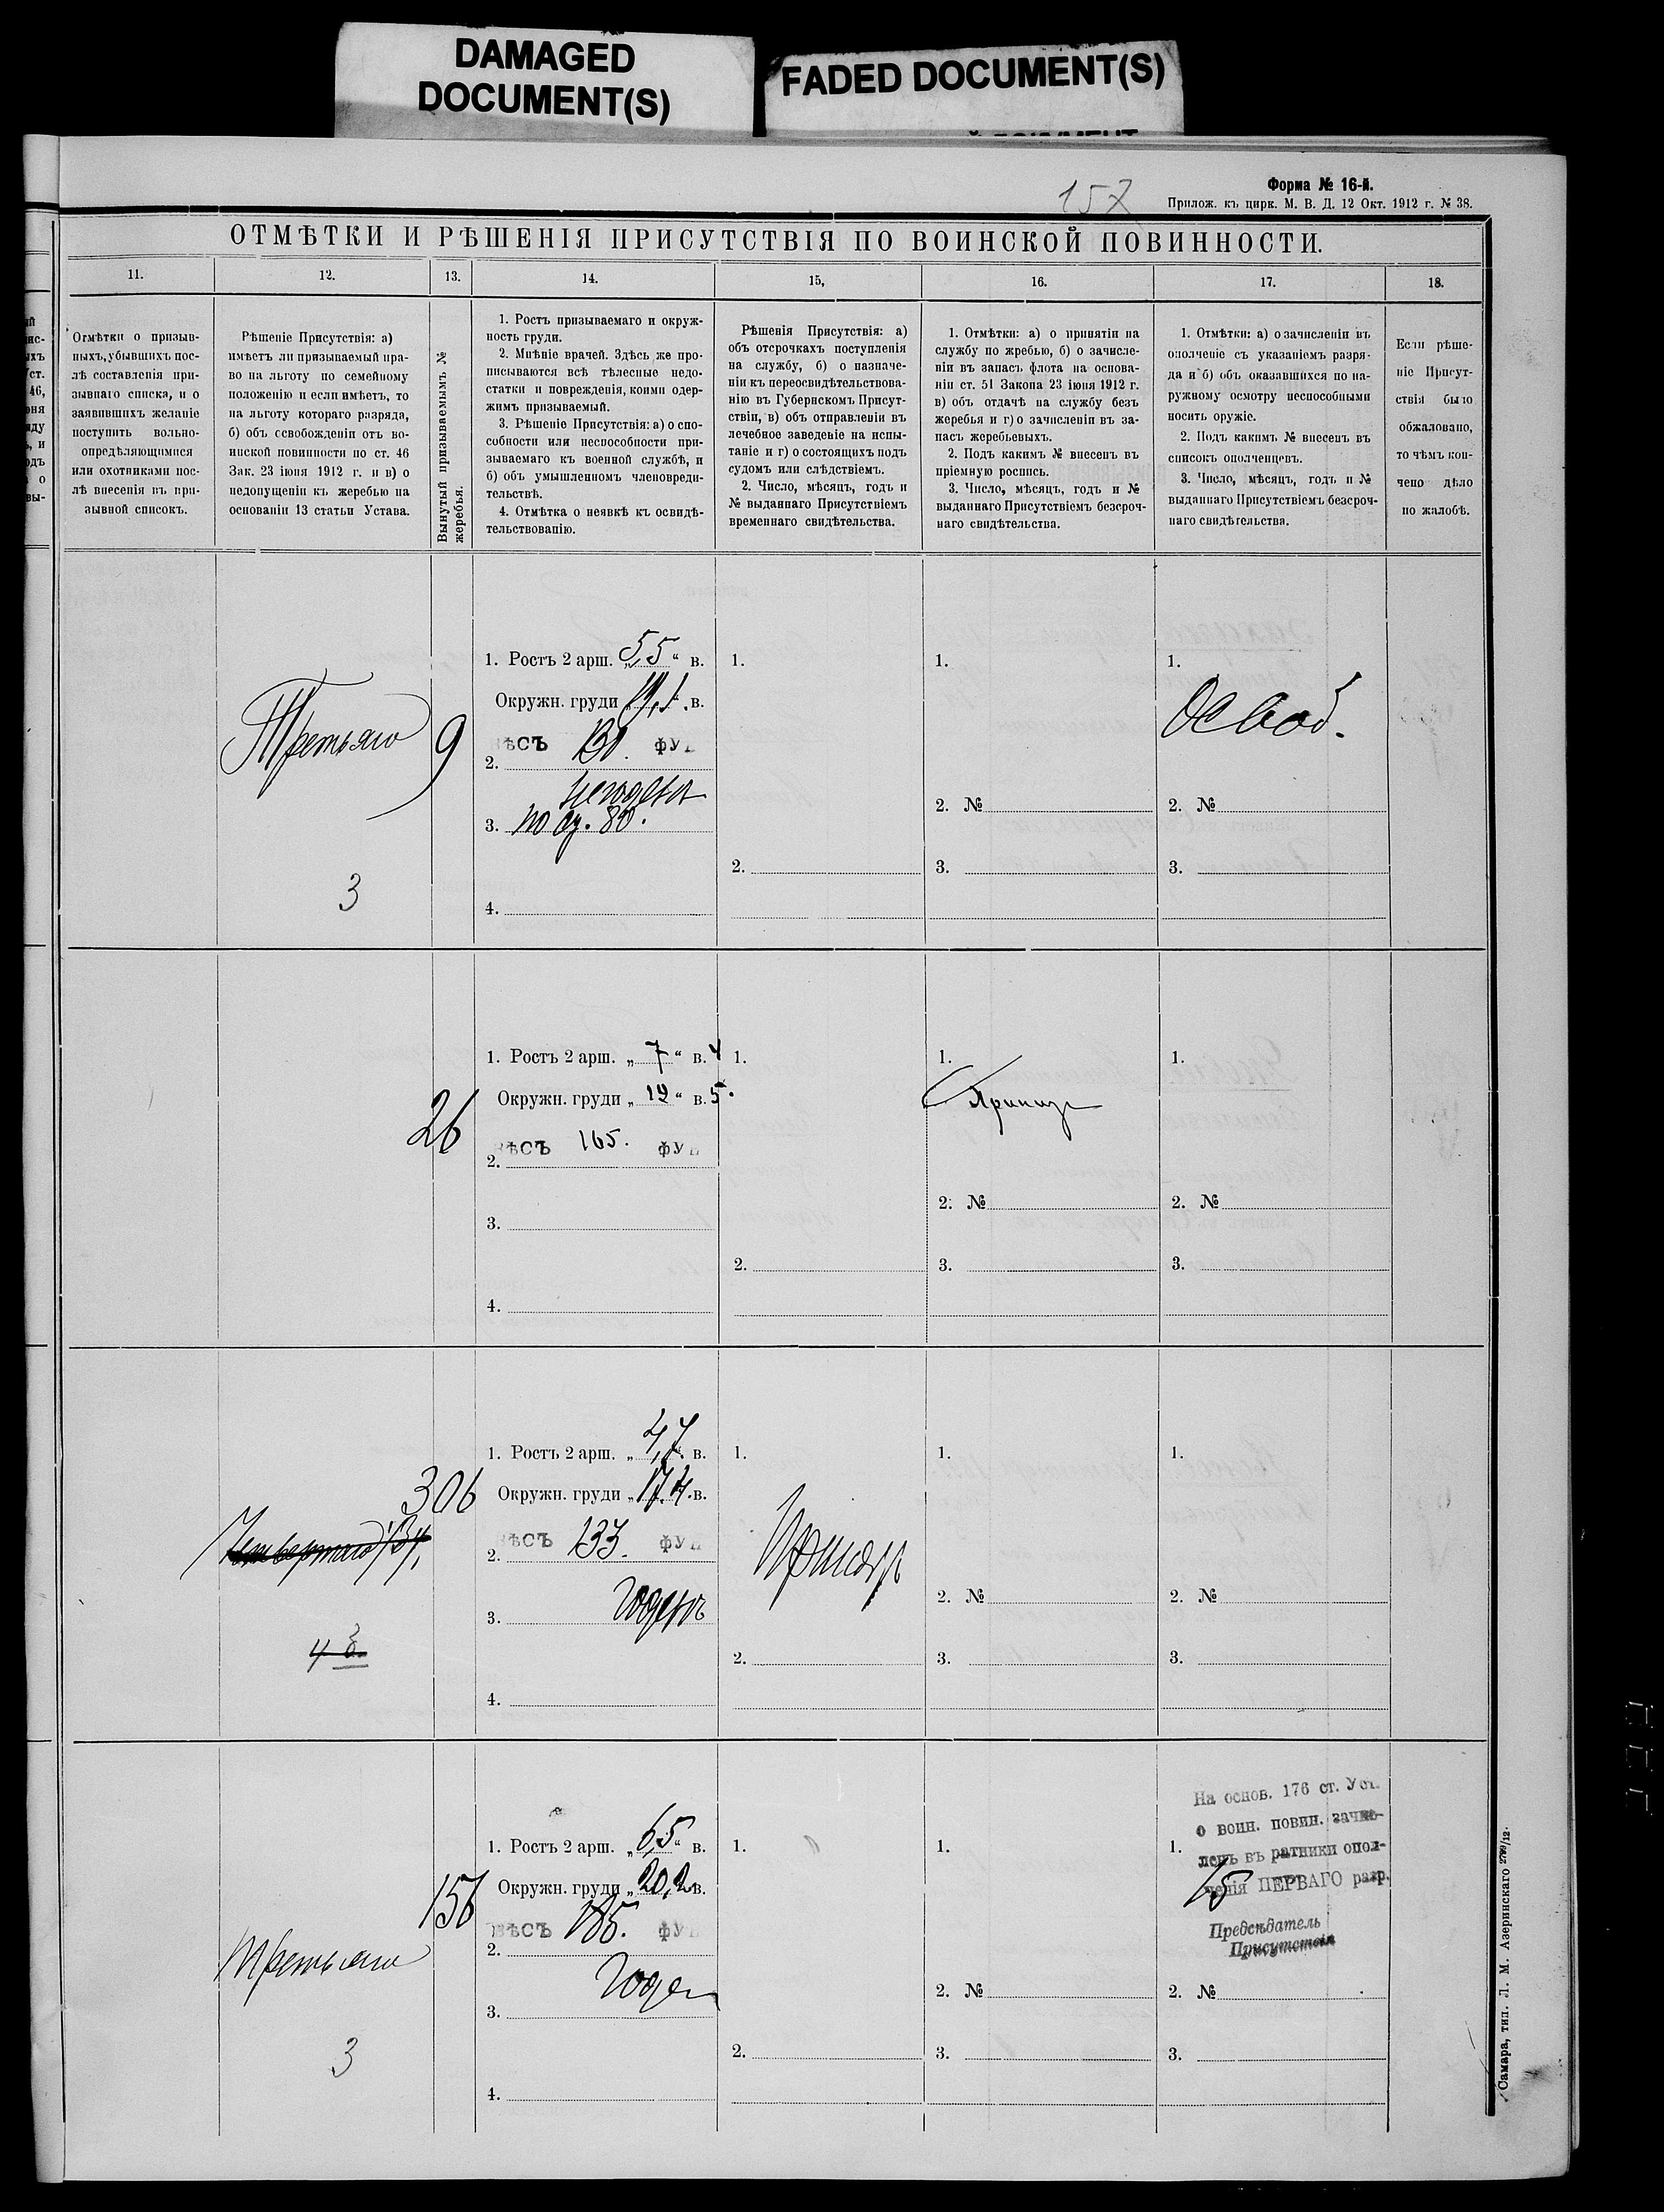 DAMAGED
DOCUMENT(S)
FADED DOCUMENT(S)
157
Форма № 16-й.
Прилож. къ цирк. М. В. Д. 12 Окт. 1912 г. № 38.
ОТМѢТКИ И РѢШЕНІЯ ПРИСУТСТВІЯ ПО ВОИНСКОЙ ПОВИННОСТИ.
11.
12.
13.
14.
15,
16.
17.
18.
Отмѣтки о призыв-
ныхъ, убывшихъ пос-
лѣ составленія при-
зывнаго списка, и о
заявившихъ желаніе
поступить вольно-
опредѣляющимися
или охотниками пос-
лѣ внесенія въ при-
зывной списокъ.
Рѣшеніе Присутствія: а)
имѣетъ ли призываемый пра-
во на льготу по семейному
положенію и если имѣетъ, то
на льготу котораго разряда,
б) объ освобожденіи отъ во-
инской повинности по ст. 46
Зак. 23 іюня 1912 г. и в) о
недопущеніи къ жеребью на
основаніи 13 статьи Устава.
Вынутый призываемымъ №
жеребья.
1. Ростъ призываемаго и окруж-
ность груди.
2. Мнѣніе врачей. Здѣсь же про-
писываются всѣ тѣлесные недо-
статки и поврежденія, коими одер-
жимъ призываемый.
3. Рѣшеніе Присутствія: а) о спо-
собности или неспособности при-
зываемаго къ военной службѣ, и
б) объ умышленномъ членовреди-
тельствѣ.
4. Отмѣтка о неявкѣ къ освидѣ-
тельствованію.
Рѣшенія Присутствія: а)
объ отсрочкахъ поступленія
на службу, б) о назначе-
ніи къ переосвидѣтельствова-
нію въ Губернскомъ Присут-
ствіи, в) объ отправленіи въ
лечебное заведеніе на испы-
таніе и г) о состоящихъ подъ
судомъ или слѣдствіемъ.
2. Число, мѣсяцъ, годъ и
№ выданнаго Присутствіемъ
временнаго свидѣтельства.
1. Отмѣтки: а) о принятіи на
службу по жребью, б) о зачисле-
ніи въ запасъ флота на основа-
ніи ст. 51 Закона 23 іюня 1912 г.
в) объ отдачѣ на службу безъ
жеребья и г) о зачисленіи въ за-
пасъ жеребьевыхъ.
2. Подъ какимъ № внесенъ въ
пріемную роспись.
3. Число, мѣсяцъ, годъ и №
выданнаго Присутствіемъ безсроч-
наго свидѣтельства.
1. Отмѣтки: а) о зачисленіи въ
ополченіе съ указаніемъ разря-
да и б) объ оказавшихся по на-
ружному осмотру неспособными
носить оружіе.
2. Подъ какимъ № внесенъ въ
списокъ ополченцевъ.
3. Число, мѣсяцъ, годъ и №
выданнаго Присутствіемъ безсроч-
наго свидѣтельства.
Если рѣше-
ніе Присут-
ствія было
обжаловано,
то чѣмъ кон-
чено дѣло
по жалобѣ.
Третьяго
3
9
1. Ростъ 2 арш. „5,5“ в.
Окружн. груди „19,1. в.
ѣсъ 130. фу
2.
негоденъ
3. по
4.
1.
2.
1.
2. №
3.
1.
Освод.
2. №
3.
26
1. Ростъ 2 арш. „ 7 “ в. 4
Окружн. груди „ 19 “ в. 5.
ѣсъ 165. фу
2.
3.
4.
1.
2.
1.
2. №
3.
1.
2. №
3.
306
Четвертаго
1. Ростъ 2 арш. „ 4,7. в.
Окружн. груди „ 17,4. в.
ѣсъ 133. фу
2.
Годенъ
3.
4.
1.
2.
1.
2. №
3.
1.
2. №
3.
156
третьяго
3
1. Ростъ 2 арш. „6,5“ в.
Окружн. груди „20,2 в.
ѣсъ 185. фу
2.
Годен
3.
4.
1.
2.
1.
2. №
3.
На основ. 176 ст. Уст.
о воин. повин. зачис-
1. ленъ въ ратники опол-
ченія ПЕРВАГО разр.
15
Предсѣдатель
Присутствія
2. №
3.
Самара, тип. Л. М. Азеринскаго